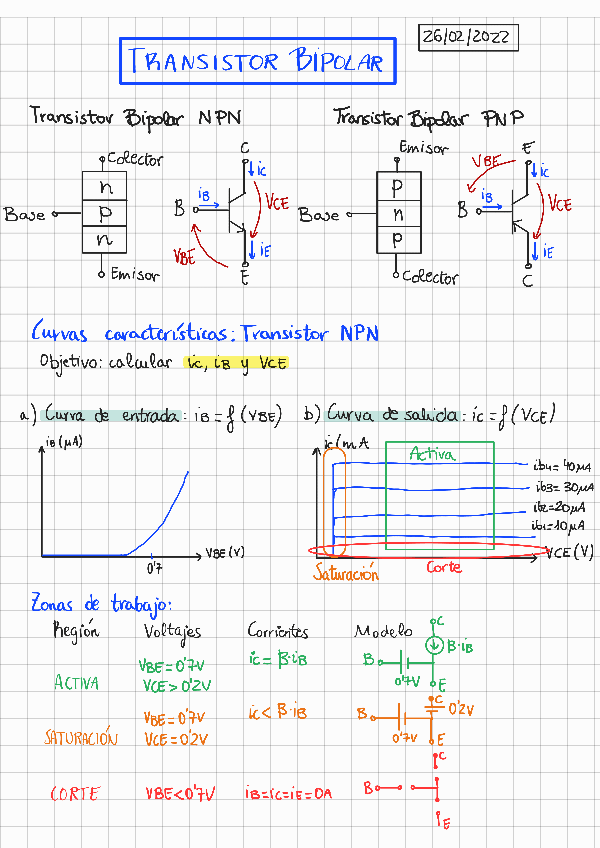 26/02/2022
TRANSISTOR BIPOLAR
Transistor Bipolar NPN
Colector
n
p
n
Base
Emisor
C
ic
iB
B
VCE
VBE
iE
E
Transistor Bipolar PNP
Emisor
p
n
p
Base
Colector
E
VBE
ic
iB
B
VCE
iE
C
Curvas características: Transistor NPN
Objetivo: calcular ic, iB y VCE
a) Curva de entrada: iB = f (VBE)
iB (μA)
VBE (V)
0'7
b) Curva de salida: ic = f (VCE)
ic (mA
Activa
ib4 = 40μA
ib3 = 30μA
ib2 = 20μA
ib1 = 10μA
VCE (V)
Saturación
Corte
Zonas de trabajo:
Región Voltajes Corrientes Modelo
ACTIVA
VBE = 0'7V
VCE > 0'2V
ic = β·iB
C
β·iB
B
0'7V
E
SATURACIÓN
VBE = 0'7V
VCE = 0'2V
ic < β·iB
C
0'2V
B
0'7V
E
CORTE VBE < 0'7V iB = ic = iE = 0A
C
B
E